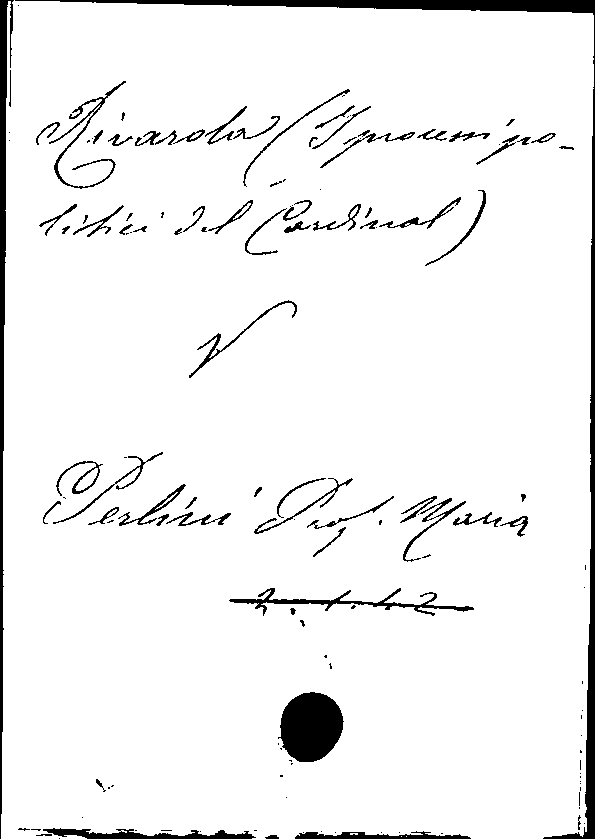 Rivarola (I processi po-
litici del Cardinal)
V
Perlini Prof. Maria